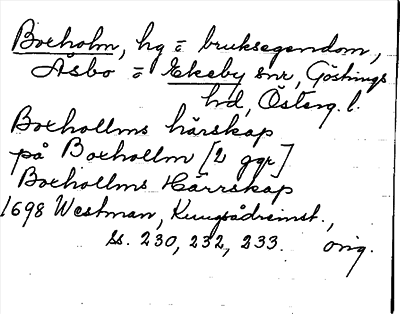 Boxholm, hg o bruksegendom,
Åsbo o Ekeby snr, Göstrings
hd, Österg. l.
Boxhollms härskap
på Boxhollm [2 ggr]
Boxhollms Härrskap
1698 Westman, Kungsådreinst.,
ss. 230, 232, 233. orig.